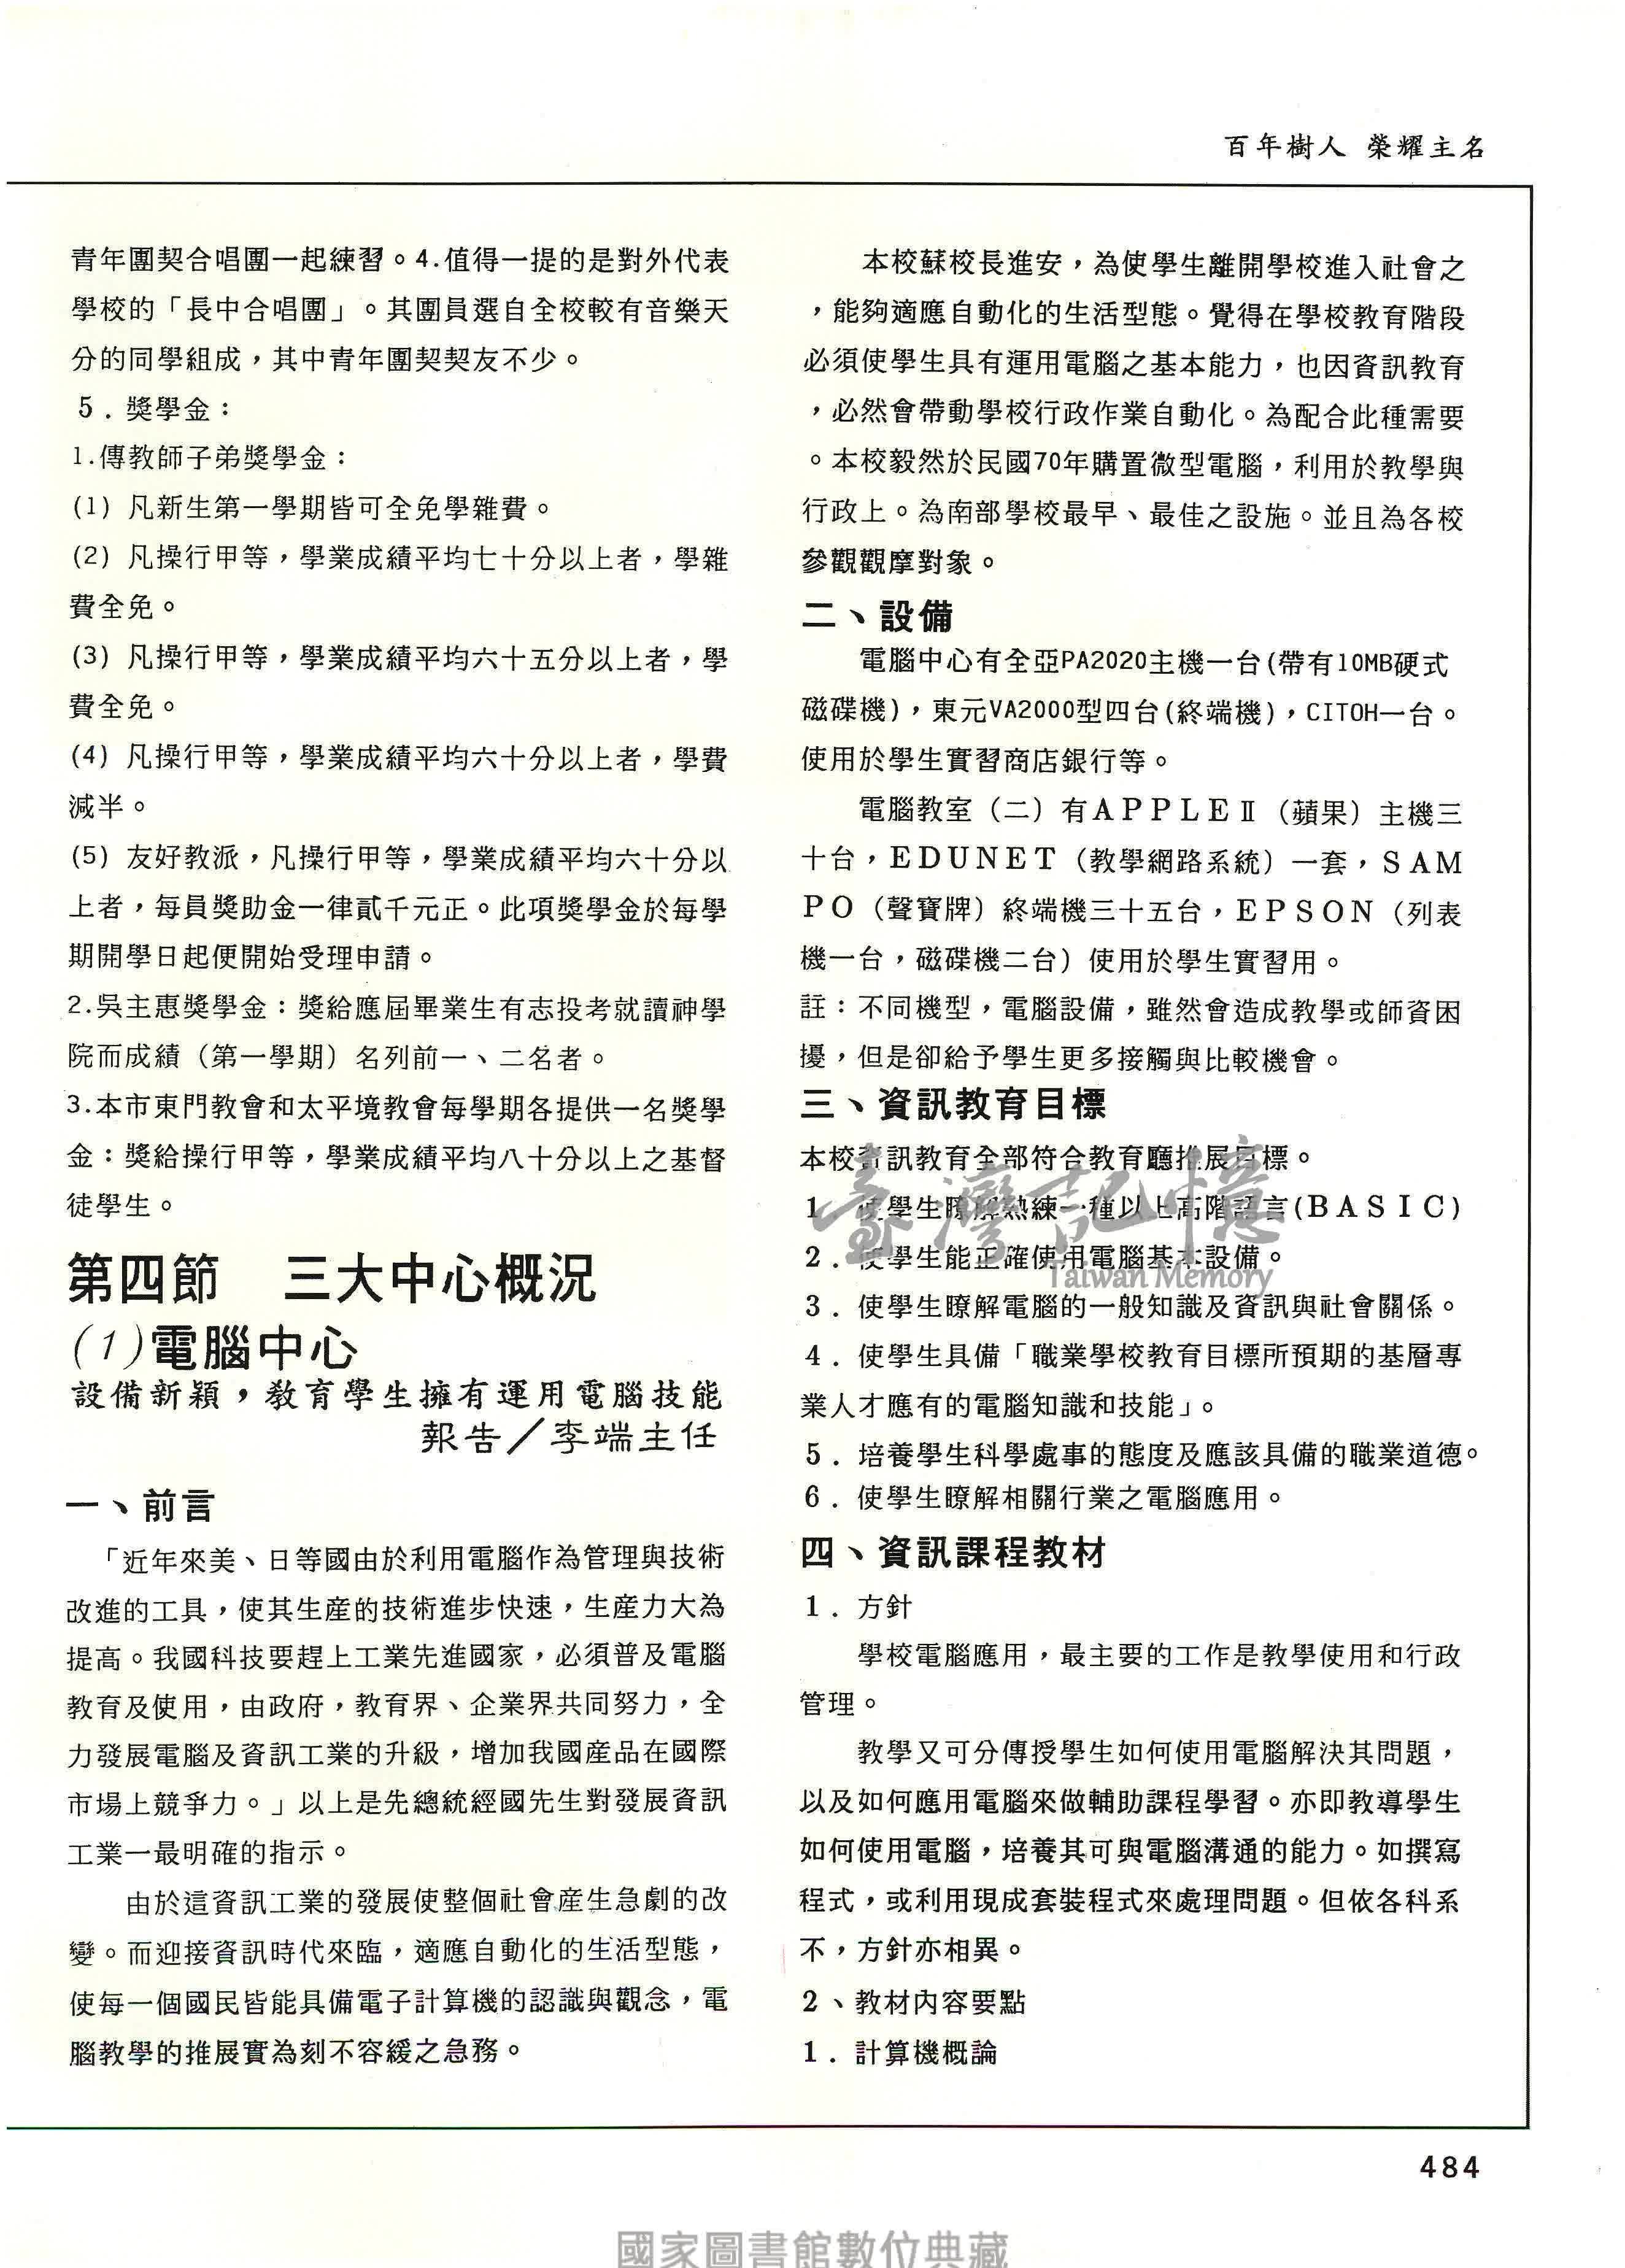 百年樹人 榮耀主名
青年團契合唱團一起練習。4.值得一提的是對外代表
學校的「長中合唱團」。其團員選自全校較有音樂天
分的同學組成，其中青年團契契友不少。
5．獎學金：
1.傳教師子弟獎學金：
(1) 凡新生第一學期皆可全免學雜費。
(2) 凡操行甲等，學業成績平均七十分以上者，學雜
費全免。
(3) 凡操行甲等，學業成績平均六十五分以上者，學
費全免。
(4) 凡操行甲等，學業成績平均六十分以上者，學費
減半。
(5) 友好教派，凡操行甲等，學業成績平均六十分以
上者，每員獎助金一律貳千元正。此項獎學金於每學
期開學日起便開始受理申請。
2.吳主惠獎學金：獎給應屆畢業生有志投考就讀神學
院而成績（第一學期）名列前一、二名者。
3.本市東門教會和太平境教會每學期各提供一名獎學
金：獎給操行甲等，學業成績平均八十分以上之基督
徒學生。
第四節　三大中心概況
(1)電腦中心
設備新穎，教育學生擁有運用電腦技能
報告／李端主任
一、前言
「近年來美、日等國由於利用電腦作為管理與技術
改進的工具，使其生產的技術進步快速，生產力大為
提高。我國科技要趕上工業先進國家，必須普及電腦
教育及使用，由政府，教育界、企業界共同努力，全
力發展電腦及資訊工業的升級，增加我國產品在國際
市場上競爭力。」以上是先總統經國先生對發展資訊
工業一最明確的指示。
由於這資訊工業的發展使整個社會產生急劇的改
變。而迎接資訊時代來臨，適應自動化的生活型態，
使每一個國民皆能具備電子計算機的認識與觀念，電
腦教學的推展實為刻不容緩之急務。
本校蘇校長進安，為使學生離開學校進入社會之
，能夠適應自動化的生活型態。覺得在學校教育階段
必須使學生具有運用電腦之基本能力，也因資訊教育
，必然會帶動學校行政作業自動化。為配合此種需要
。本校毅然於民國70年購置微型電腦，利用於教學與
行政上。為南部學校最早、最佳之設施。並且為各校
參觀觀摩對象。
二、設備
電腦中心有全亞PA2020主機一台(帶有10MB硬式
磁碟機)，東元VA2000型四台(終端機)，CITOH一台。
使用於學生實習商店銀行等。
電腦教室（二）有ＡＰＰＬＥⅡ（蘋果）主機三
十台，ＥＤＵＮＥＴ（教學網路系統）一套，ＳＡＭ
ＰＯ（聲寶牌）終端機三十五台，ＥＰＳＯＮ（列表
機一台，磁碟機二台）使用於學生實習用。
註：不同機型，電腦設備，雖然會造成教學或師資困
擾，但是卻給予學生更多接觸與比較機會。
三、資訊教育目標
本校資訊教育全部符合教育廳推展目標。
1．使學生瞭解熟練一種以上高階語言(ＢＡＳＩＣ)
2．使學生能正確使用電腦基本設備。
3．使學生瞭解電腦的一般知識及資訊與社會關係。
4．使學生具備「職業學校教育目標所預期的基層專
業人才應有的電腦知識和技能」。
5．培養學生科學處事的態度及應該具備的職業道德。
6．使學生瞭解相關行業之電腦應用。
四、資訊課程教材
1．方針
學校電腦應用，最主要的工作是教學使用和行政
管理。
教學又可分傳授學生如何使用電腦解決其問題，
以及如何應用電腦來做輔助課程學習。亦即教導學生
如何使用電腦，培養其可與電腦溝通的能力。如撰寫
程式，或利用現成套裝程式來處理問題。但依各科系
不，方針亦相異。
2、教材內容要點
1．計算機概論
臺灣記憶
Taiwan Memory
484
國家圖書館數位典藏